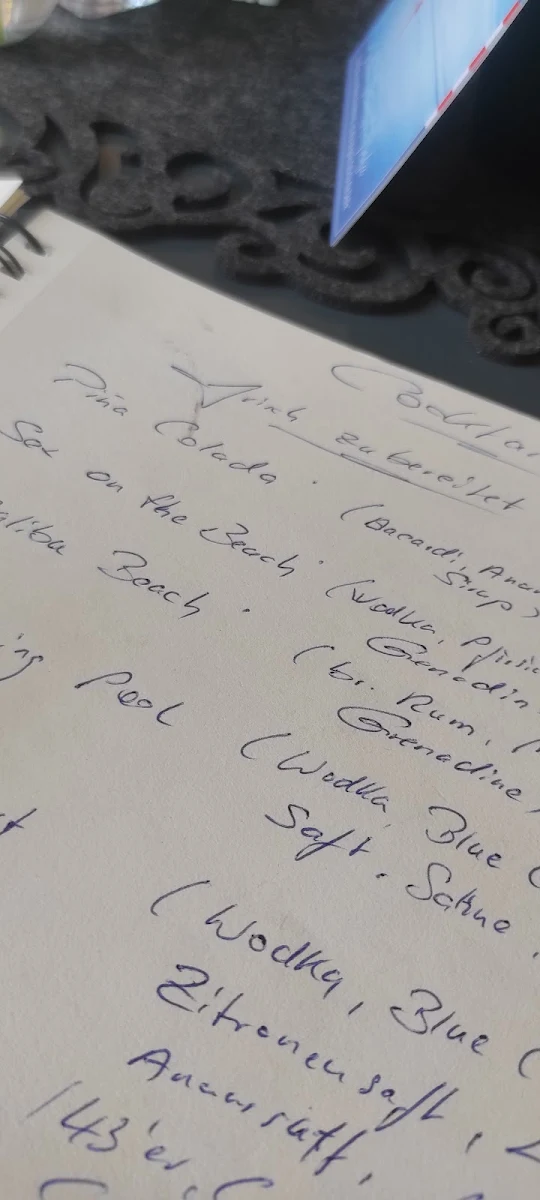 Cocktai
frisch zubereitet
Pina Colada. (Bacardi, Anan
Sirup)
Sex on the Beach. (Wodka, Pfirsic
Grenadin
alibu Beach. (br. Rum,
Grenadine)
ing Pool (Wodka, Blue (
Saft, Sahne,
(Wodka, Blue (
Zitronensaft,
Ananssaft,
143'er,